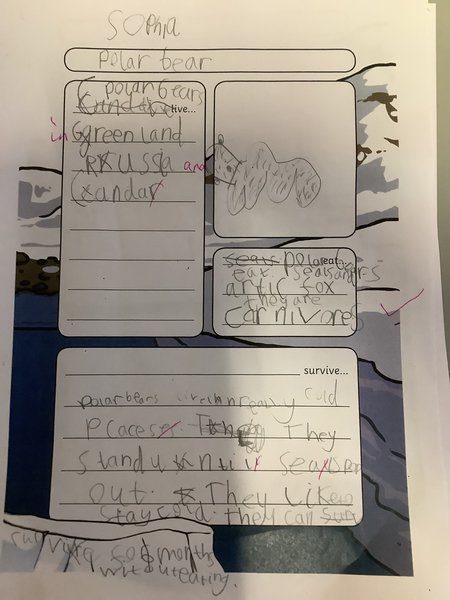 SOPhia
Polar bear
polar bears
live...
in Ggreenland
RUSSia and
Kandar
polar
eat...
eat. Pseals and
artic fox
they are
Carnivores
survive...
polar bears live in really cold
Places. They
stand until seals pop
out. They like to
stay cold. They can
survive for 8 months
without eating.